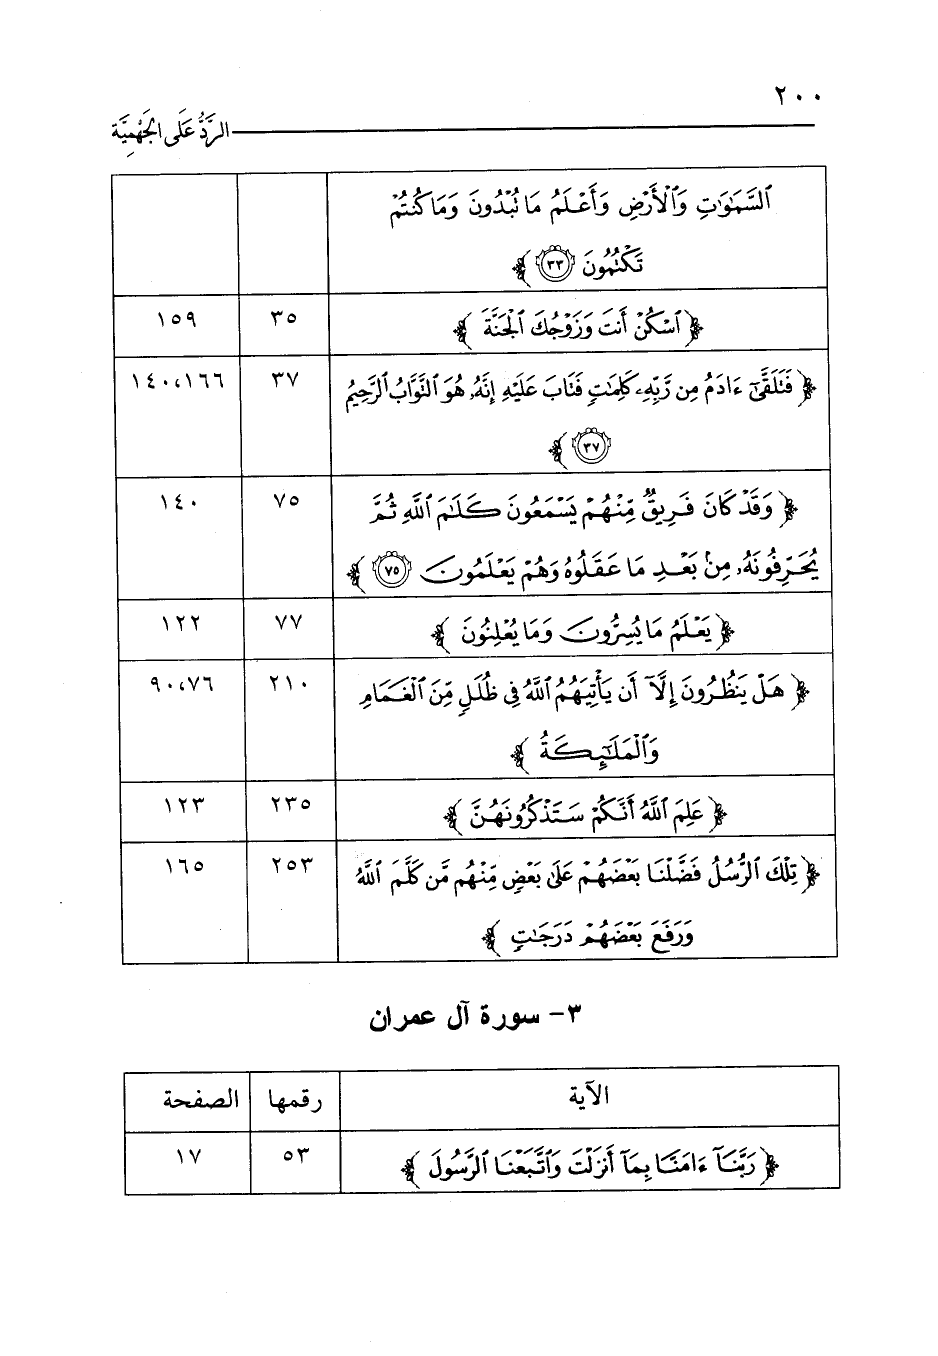 ٢٠٠
الرَّدُّ عَلَى الجَهْمِيَّة
ٱلسَّمَٰوَٰتِ وَٱلْأَرْضِ وَأَعْلَمُ مَا تُبْدُونَ وَمَا كُنتُمْ
تَكْتُمُونَ ٣٣ ﴾
﴿ ٱسْكُنْ أَنتَ وَزَوْجُكَ ٱلْجَنَّةَ ﴾ ٣٥ ١٥٩
﴿ فَتَلَقَّىٰٓ ءَادَمُ مِن رَّبِّهِۦ كَلِمَٰتٍ فَتَابَ عَلَيْهِ إِنَّهُۥ هُوَ ٱلتَّوَّابُ ٱلرَّحِيمُ ٣٧ ١٤٠،١٦٦
٣٧ ﴾
﴿ وَقَدْ كَانَ فَرِيقٌ مِّنْهُمْ يَسْمَعُونَ كَلَٰمَ ٱللَّهِ ثُمَّ ٧٥ ١٤٠
يُحَرِّفُونَهُۥ مِنۢ بَعْدِ مَا عَقَلُوهُ وَهُمْ يَعْلَمُونَ ٧٥ ﴾
﴿ يَعْلَمُ مَا يُسِرُّونَ وَمَا يُعْلِنُونَ ﴾ ٧٧ ١٢٢
﴿ هَلْ يَنظُرُونَ إِلَّآ أَن يَأْتِيَهُمُ ٱللَّهُ فِى ظُلَلٍ مِّنَ ٱلْغَمَامِ ٢١٠ ٩٠،٧٦
وَٱلْمَلَٰٓئِكَةُ ﴾
﴿ عَلِمَ ٱللَّهُ أَنَّكُمْ سَتَذْكُرُونَهُنَّ ﴾ ٢٣٥ ١٢٣
﴿ تِلْكَ ٱلرُّسُلُ فَضَّلْنَا بَعْضَهُمْ عَلَىٰ بَعْضٍ مِّنْهُم مَّن كَلَّمَ ٱللَّهُ ٢٥٣ ١٦٥
وَرَفَعَ بَعْضَهُمْ دَرَجَٰتٍ ﴾
٣- سورة آل عمران
الآية رقمها الصفحة
﴿ رَبَّنَآ ءَامَنَّا بِمَآ أَنزَلْتَ وَٱتَّبَعْنَا ٱلرَّسُولَ ﴾ ٥٣ ١٧